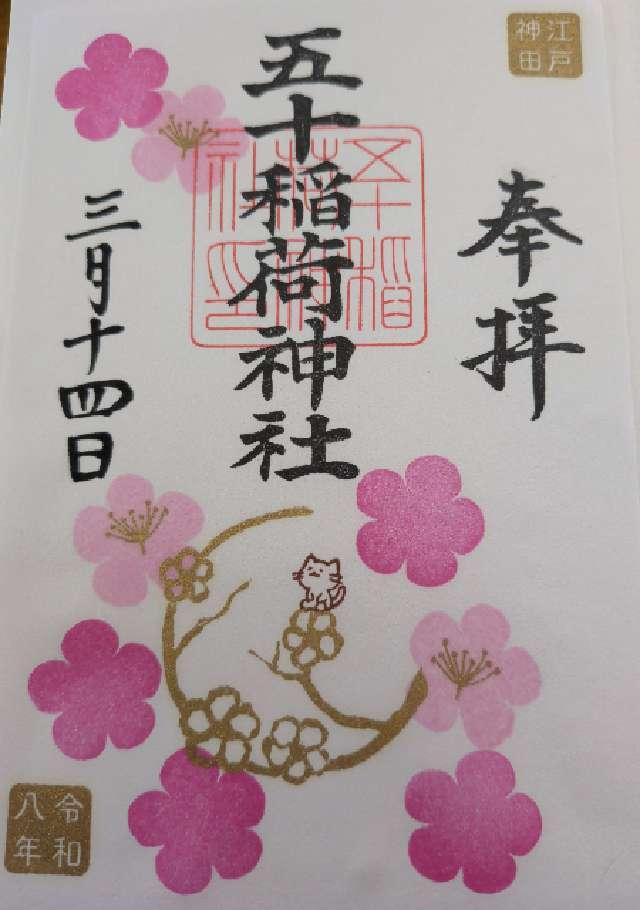 江戸
神田
奉拝
五十稲荷神社
五十稲
荷神社印
三月十四日
令和
八年